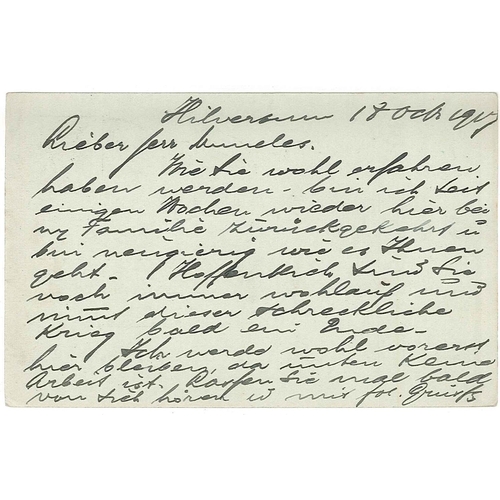 Hilversum 18 Oct 1917
Lieber Herr
Wie Sie wohl erfahren
haben werden - bin ich seit
einigen Wochen wieder hier bei
m/ Familie zurückgekehrt u
bin neugierig wie es Ihnen
geht - Hoffentlich sind Sie
noch immer wohlauf und
nimt dieser schreckliche
Krieg bald ein Ende -
Ich werde wohl vorerst
hier bleiben, da unten keine
Arbeit ist. Lassen Sie mal bald
von sich hören u mit frl.